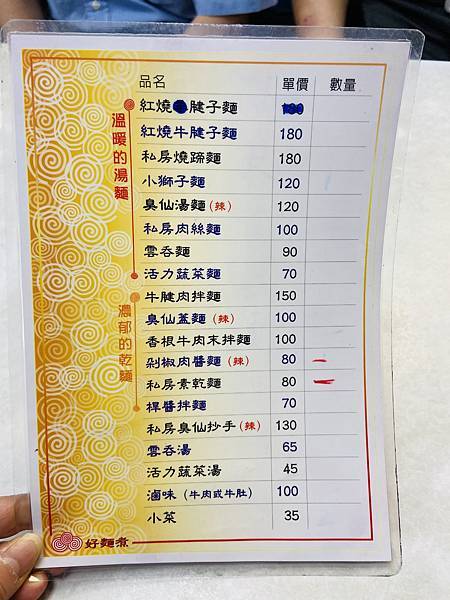 品名 單價 數量
溫暖的湯麵
紅燒 腱子麵
紅燒牛腱子麵 180
私房燒蹄麵 180
小獅子麵 120
臭仙湯麵(辣) 120
私房肉絲麵 100
雲吞麵 90
活力蔬菜麵 70
濃郁的乾麵
牛腱肉拌麵 150
臭仙蓋麵(辣) 100
香根牛肉末拌麵 100
剁椒肉醬麵(辣) 80 一
私房素乾麵 80 一
桿醬拌麵 70
私房臭仙抄手(辣) 130
雲吞湯 65
活力蔬菜湯 45
滷味(牛肉或牛肚) 100
小菜 35
好麵煮